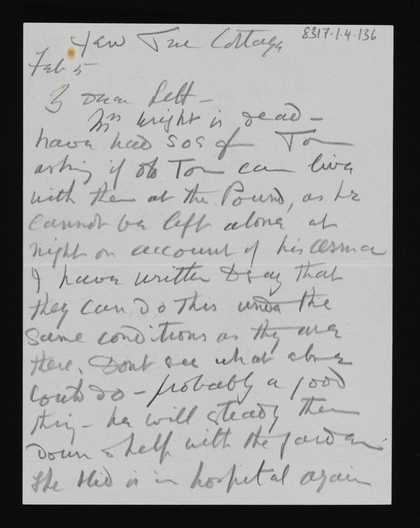 8317·1·4·136
Yew Tree Cottage
Feb 5
My dear Nell –
Mrs Wright is dead –
have had SOS from Tom
asking if old Tom can live
with them at the Pound, as he
cannot be left alone at
night on account of his asma
I have written to say that
they can do this under the
same conditions as they are
there. Dont see what else
could do – probably a good
thing – he will steady them
down & help with the garden.
She is in hospital again